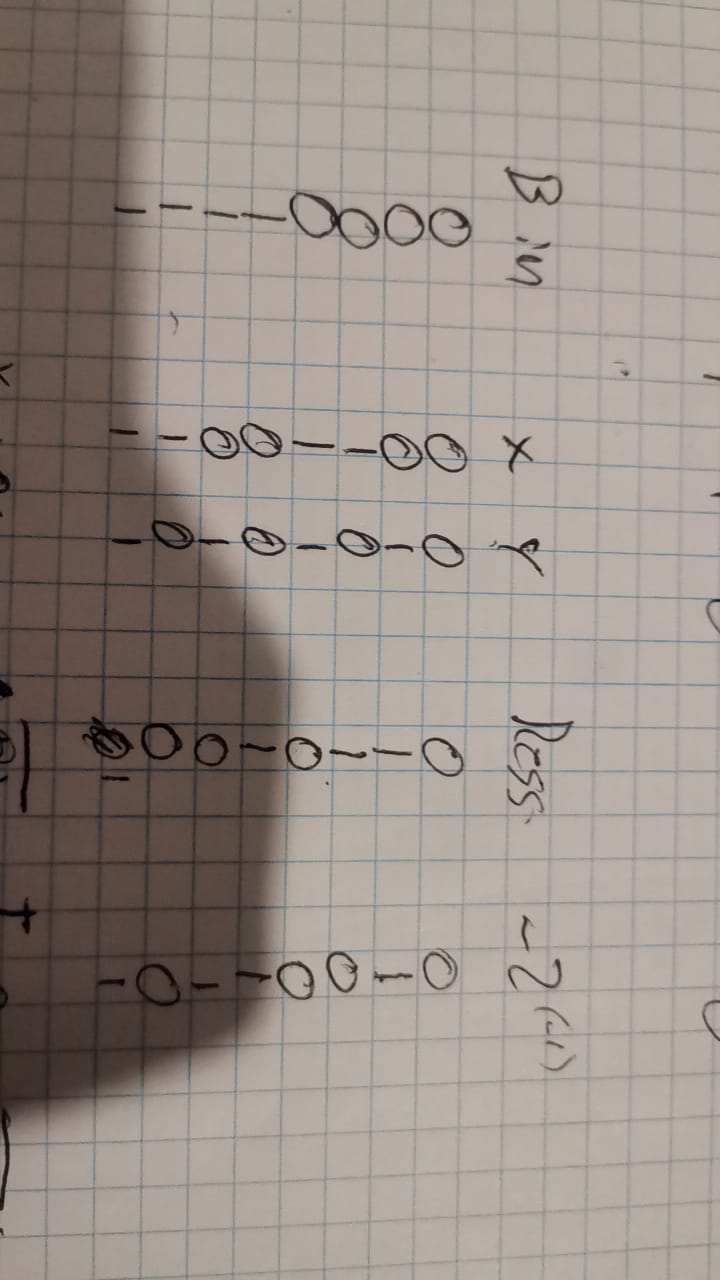 B in X Y Ress. -2(-1)
0 0 0 0 0
0 0 1 1 1
0 1 0 1 0
0 1 1 0 0
1 0 0 1 1
1 0 1 0 1
1 1 0 0 0
1 1 1 1 1